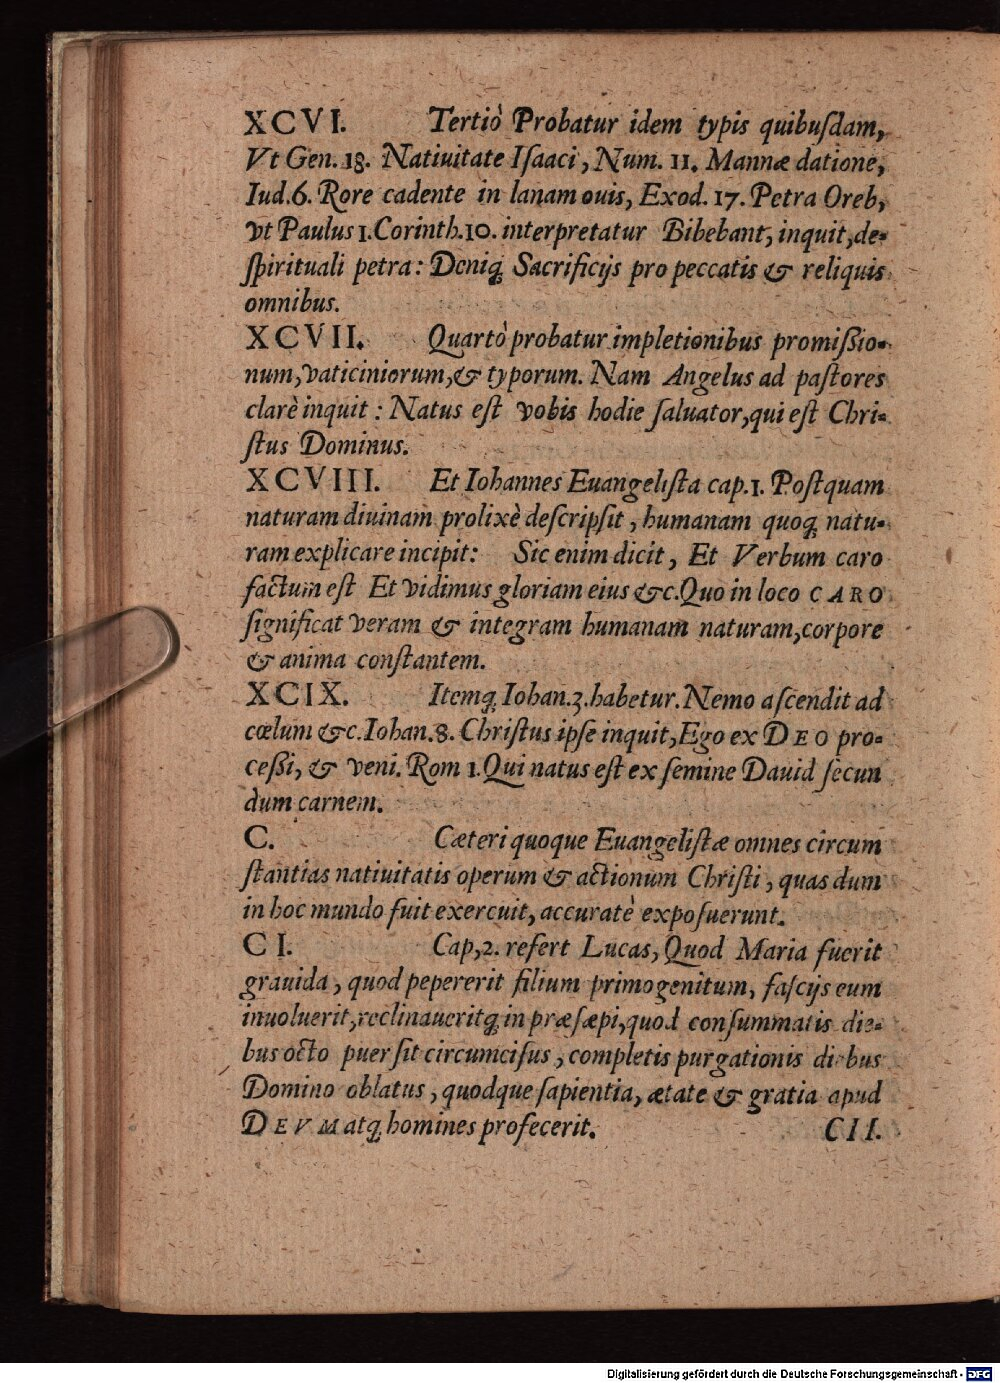 XCVI. Tertiò Probatur idem typis quibuſdam,
Vt Gen. 18. Natiuitate Iſaaci, Num. 11. Mannæ datione,
Iud. 6. Rore cadente in lanam ouis, Exod. 17. Petra Oreb,
vt Paulus 1. Corinth. 10. interpretatur Bibebant, inquit, de-
ſpirituali petra: Deniq; Sacrificijs pro peccatis & reliquis
omnibus.
XCVII. Quartò probatur impletionibus promiſsio-
num, vaticiniorum, & typorum. Nam Angelus ad paſtores
clarè inquit: Natus eſt vobis hodie ſaluator, qui eſt Chri-
ſtus Dominus.
XCVIII. Et Iohannes Euangeliſta cap. 1. Poſtquam
naturam diuinam prolixè deſcripſit, humanam quoq; natu-
ram explicare incipit: Sic enim dicit, Et Verbum caro
factum eſt Et vidimus gloriam eius &c. Quo in loco CARO
ſignificat veram & integram humanam naturam, corpore
& anima conſtantem.
XCIX. Itemq; Iohan. 3. habetur. Nemo aſcendit ad
cœlum &c. Iohan. 8. Chriſtus ipſe inquit, Ego ex DEO pro-
ceſsi, & veni. Rom 1. Qui natus eſt ex ſemine Dauid ſecun
dum carnem.
C. Cæteri quoque Euangeliſtæ omnes circum
ſtantias natiuitatis operum & actionum Chriſti, quas dum
in hoc mundo fuit exercuit, accuratè expoſuerunt.
CI. Cap, 2. refert Lucas, Quod Maria fuerit
grauida, quod pepererit filium primogenitum, faſcijs eum
inuoluerit, reclinaueritq; in præſæpi, quod conſummatis die-
bus octo puer ſit circumciſus, completis purgationis diebus
Domino oblatus, quodque ſapientia, ætate & gratia apud
DEVM atq; homines profecerit. CII.
Digitalisierung gefördert durch die Deutsche Forschungsgemeinschaft - DFG